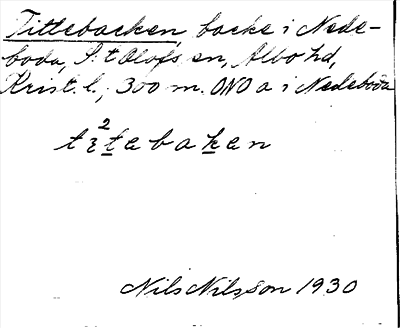 Tittebacken, backe i Nede-
boda, S:t Olofs sn, Albo hd,
Krist. l., 300 m. ONO a i Nedeboda
tɩ²tebaken
Nils Nilsson 1930